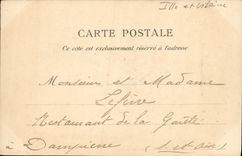 Ille et Vilaine
CARTE POSTALE
Ce côté est exclusivement réservé à l'adresse
Monsieur et Madame
Lefèvre
Restaurant de la Gaîté
à Dampierre (S. et Oise)